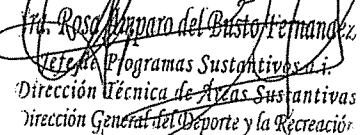 Dra. Rosa Amparo del Busto Fernández
Jefe de Programas Sustantivos a.i.
Dirección Técnica de Áreas Sustantivas
Dirección General del Deporte y la Recreación